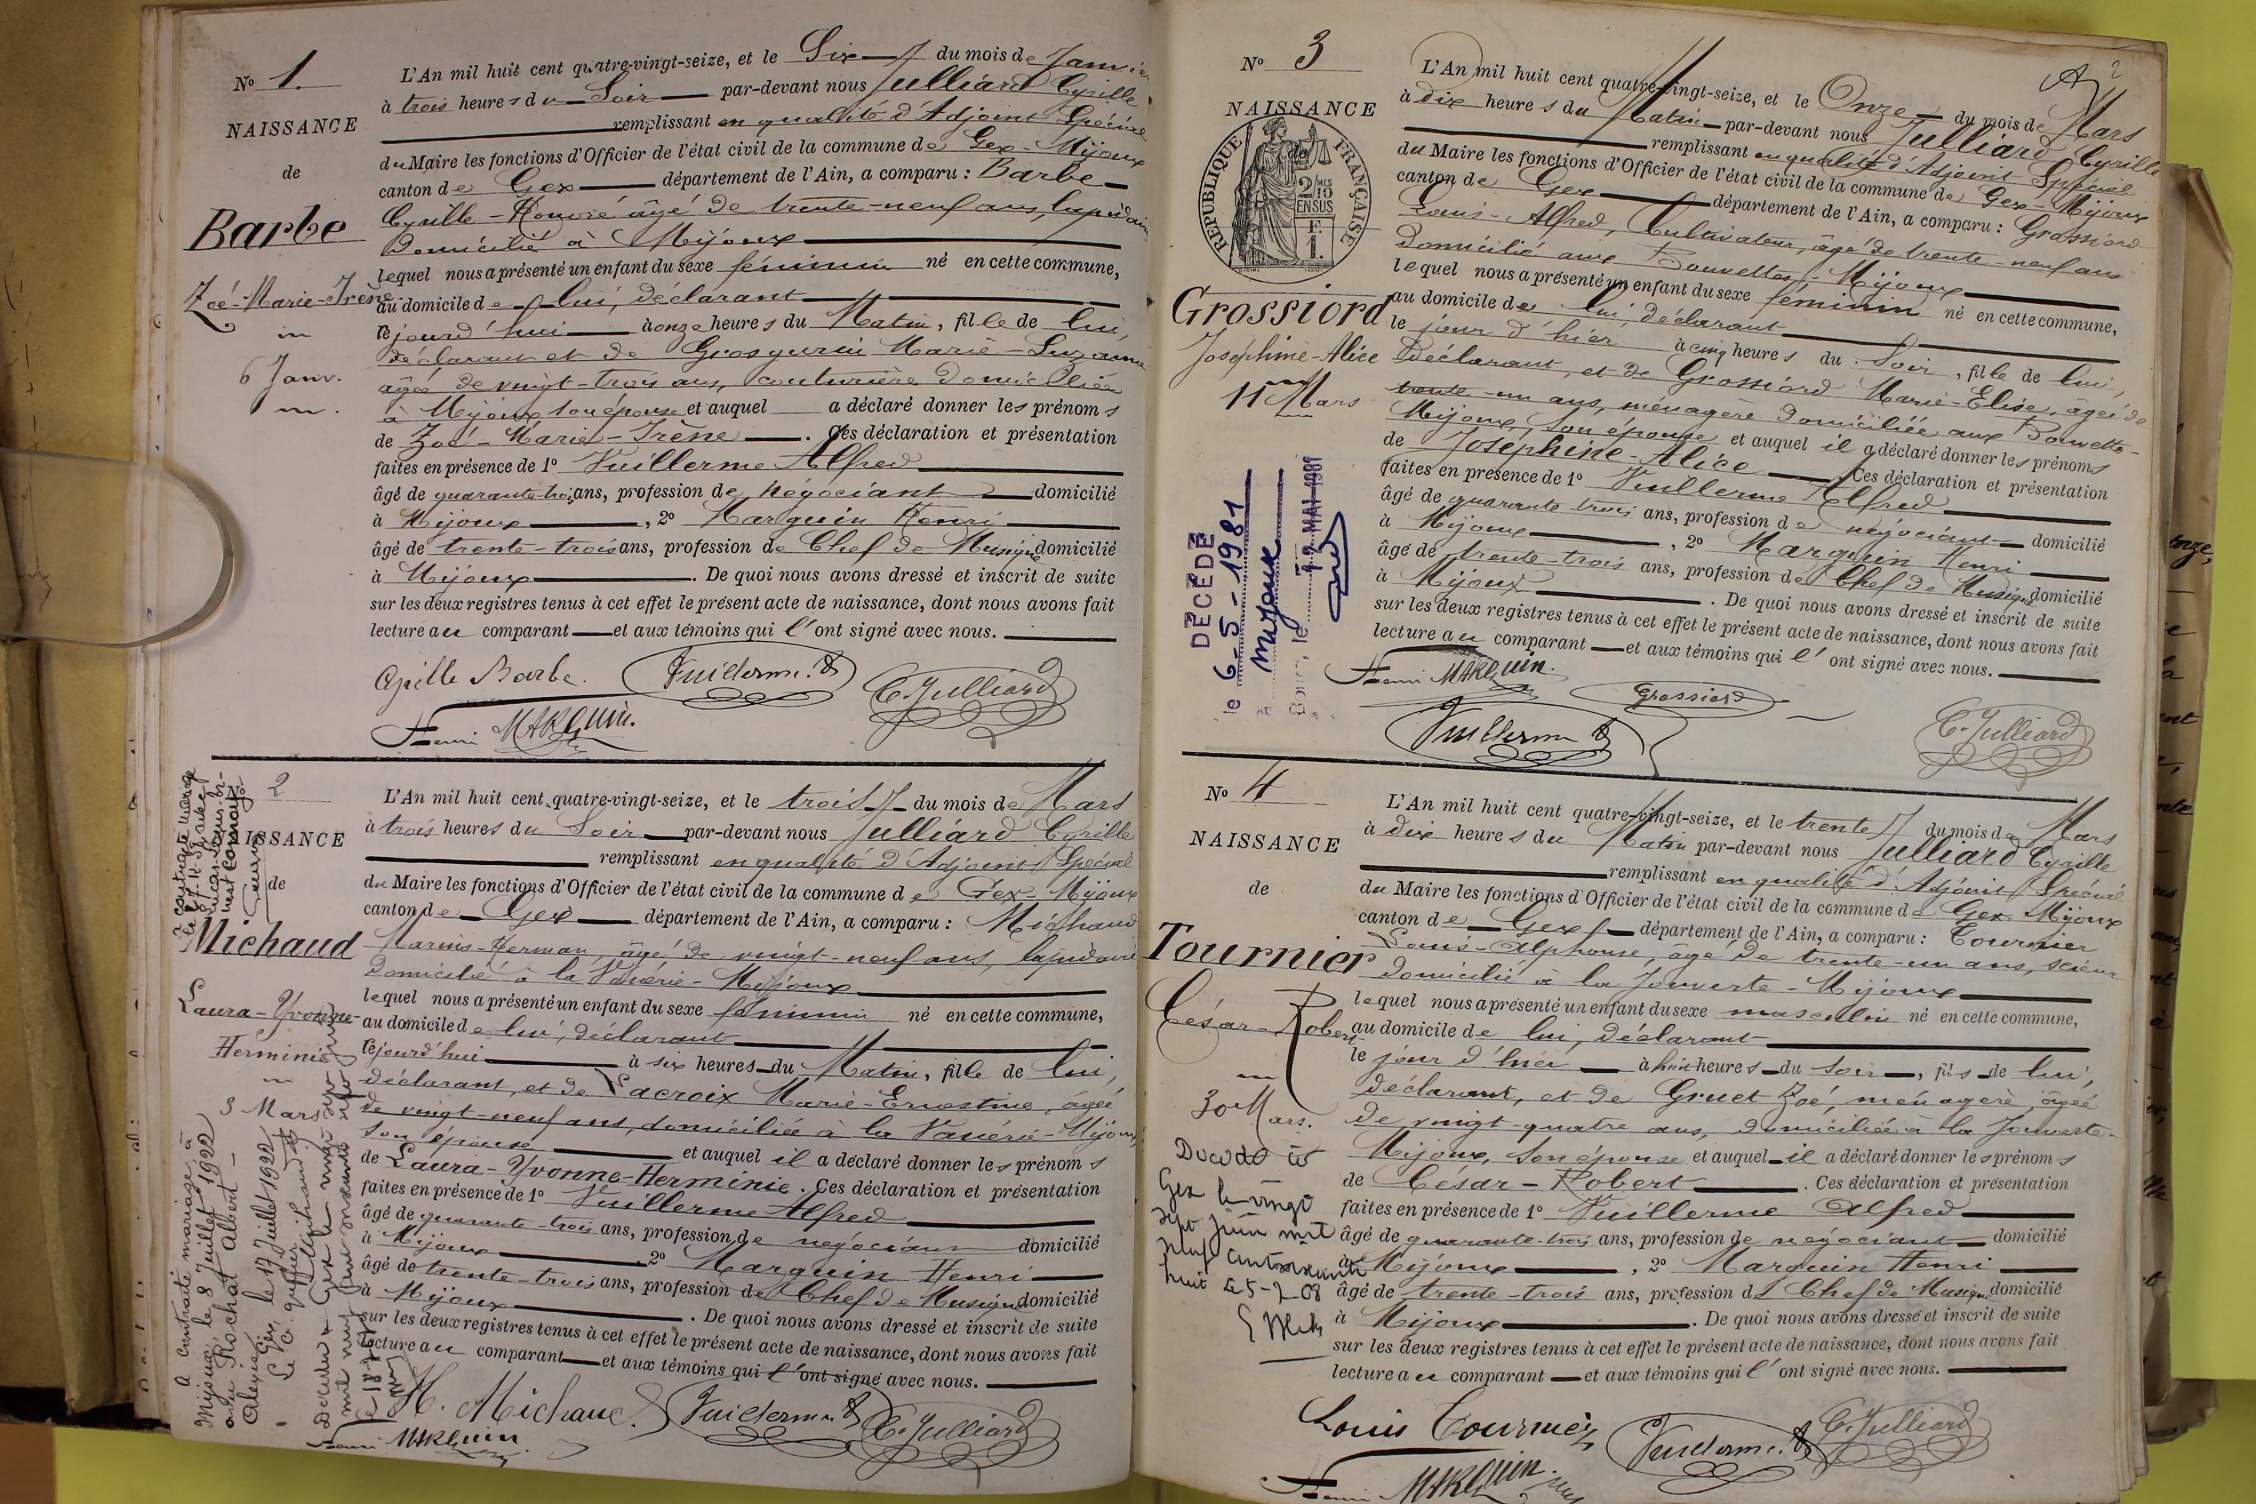 N° 1.
NAISSANCE
de
Barbe
Zoé-Marie-Irène
6 Janv.
L'An mil huit cent quatre-vingt-seize, et le Six du mois de Janvier
à trois heures du Soir par-devant nous Julliard Cyrille
remplissant en qualité d'Adjoint Spécial
du Maire les fonctions d'Officier de l'état civil de la commune de Gex-Mijoux
canton de Gex département de l'Ain, a comparu : Barbe
Cyrille-Honoré âgé de trente-neuf ans, lapidaire
domicilié à Mijoux
lequel nous a présenté un enfant du sexe féminin né en cette commune,
au domicile de lui, déclarant
cejourd'hui à onze heures du Matin, fille de lui,
déclarant et de Grosgurin Marie-Suzanne
âgée de vingt-trois ans, couturière domiciliée
à Mijoux son épouse et auquel a déclaré donner les prénoms
de Zoé-Marie-Irène. Ces déclaration et présentation
faites en présence de 1° Vuillerme Alfred
âgé de quarante-trois ans, profession de négociant domicilié
à Mijoux, 2° Marquin Henri
âgé de trente-trois ans, profession de Chef de Musique domicilié
à Mijoux. De quoi nous avons dressé et inscrit de suite
sur les deux registres tenus à cet effet le présent acte de naissance, dont nous avons fait
lecture au comparant et aux témoins qui l'ont signé avec nous.
Cyrille Barbe. Vuillerme A C. Julliard
Henri MARQUIN.
2
NAISSANCE
de
Michaud
Laura-Yvonne-
Herminie
3 Mars
L'An mil huit cent quatre-vingt-seize, et le trois du mois de Mars
à trois heures du Soir par-devant nous Julliard Cyrille
remplissant en qualité d'Adjoint Spécial
du Maire les fonctions d'Officier de l'état civil de la commune de Gex-Mijoux
canton de Gex département de l'Ain, a comparu : Michaud
Marius-Herman, âgé de vingt-neuf ans, lapidaire
domicilié à la Vasérie-Mijoux
lequel nous a présenté un enfant du sexe féminin né en cette commune,
au domicile de lui, déclarant
cejourd'hui à six heures du Matin, fille de lui,
déclarant, et de Lacroix Marie-Ernestine, âgée
de vingt-neuf ans, domiciliée à la Vasérie-Mijoux,
son épouse et auquel il a déclaré donner les prénoms
de Laura-Yvonne-Herminie. Ces déclaration et présentation
faites en présence de 1° Vuillerme Alfred
âgé de quarante-trois ans, profession de négociant domicilié
à Mijoux 2° Marquin Henri
âgé de trente-trois ans, profession de Chef de Musique domicilié
à Mijoux. De quoi nous avons dressé et inscrit de suite
sur les deux registres tenus à cet effet le présent acte de naissance, dont nous avons fait
lecture au comparant et aux témoins qui l'ont signé avec nous.
H. Michaud Vuillerme A C. Julliard
Henri MARQUIN
A contracté mariage à
Mijoux, le 8 Juillet 1922
avec Rochat Albert
Alexis
Gex, le 17 Juillet 1922
N° 3
NAISSANCE
de
RÉPUBLIQUE FRANÇAISE
2/10mes
EN SUS
F.
1.
Grossiord
Joséphine-Alice
11 Mars
DÉCÉDÉ
le 6-5-1981
à Mijoux
12 MAI 1981
L'An mil huit cent quatre-vingt-seize, et le Onze du mois de Mars
à dix heures du Matin par-devant nous Julliard Cyrille
remplissant en qualité d'Adjoint Spécial
du Maire les fonctions d'Officier de l'état civil de la commune de Gex-Mijoux
canton de Gex département de l'Ain, a comparu : Grossiord
Louis-Alfred, Cultivateur, âgé de trente-neuf ans
domicilié aux Bouvettes, Mijoux
lequel nous a présenté un enfant du sexe féminin né en cette commune,
au domicile de lui, déclarant
le jour d'hier à cinq heures du Soir, fille de lui,
déclarant, et de Grossiord Marie-Elise, âgée de
trente-un ans, ménagère domiciliée aux Bouvettes-
Mijoux, son épouse et auquel il a déclaré donner les prénoms
de Joséphine-Alice Ces déclaration et présentation
faites en présence de 1° Vuillerme Alfred
âgé de quarante trois ans, profession de négociant domicilié
à Mijoux, 2° Marquin Henri
âgé de trente-trois ans, profession de Chef de Musique domicilié
à Mijoux. De quoi nous avons dressé et inscrit de suite
sur les deux registres tenus à cet effet le présent acte de naissance, dont nous avons fait
lecture au comparant et aux témoins qui l'ont signé avec nous.
Henri MARQUIN. Grossiord
Vuillerme A C. Julliard
N° 4
NAISSANCE
de
Tournier
César-Robert
30 Mars.
Décédé à
Gex le vingt
sept juin mil
neuf cent soixante
huit
L'An mil huit cent quatre-vingt-seize, et le trente du mois de Mars
à dix heures du Matin par-devant nous Julliard Cyrille
remplissant en qualité d'Adjoint Spécial
du Maire les fonctions d'Officier de l'état civil de la commune de Gex-Mijoux
canton de Gex département de l'Ain, a comparu : Tournier
Louis-Alphonse, âgé de trente-un ans, scieur
domicilié à la Jouverte-Mijoux
lequel nous a présenté un enfant du sexe masculin né en cette commune,
au domicile de lui, déclarant
le jour d'hier à huit heures du soir, fils de lui,
déclarant, et de Gruet Zoé, ménagère, âgée
de vingt-quatre ans, domiciliée à la Jouverte-
Mijoux, son épouse et auquel il a déclaré donner les prénoms
de César-Robert. Ces déclaration et présentation
faites en présence de 1° Vuillerme Alfred
âgé de quarante-trois ans, profession de négociant domicilié
à Mijoux, 2° Marquin Henri
âgé de trente-trois ans, profession de Chef de Musique domicilié
à Mijoux. De quoi nous avons dressé et inscrit de suite
sur les deux registres tenus à cet effet le présent acte de naissance, dont nous avons fait
lecture au comparant et aux témoins qui l'ont signé avec nous.
Louis Tournier Vuillerme A C. Julliard
Henri MARQUIN.